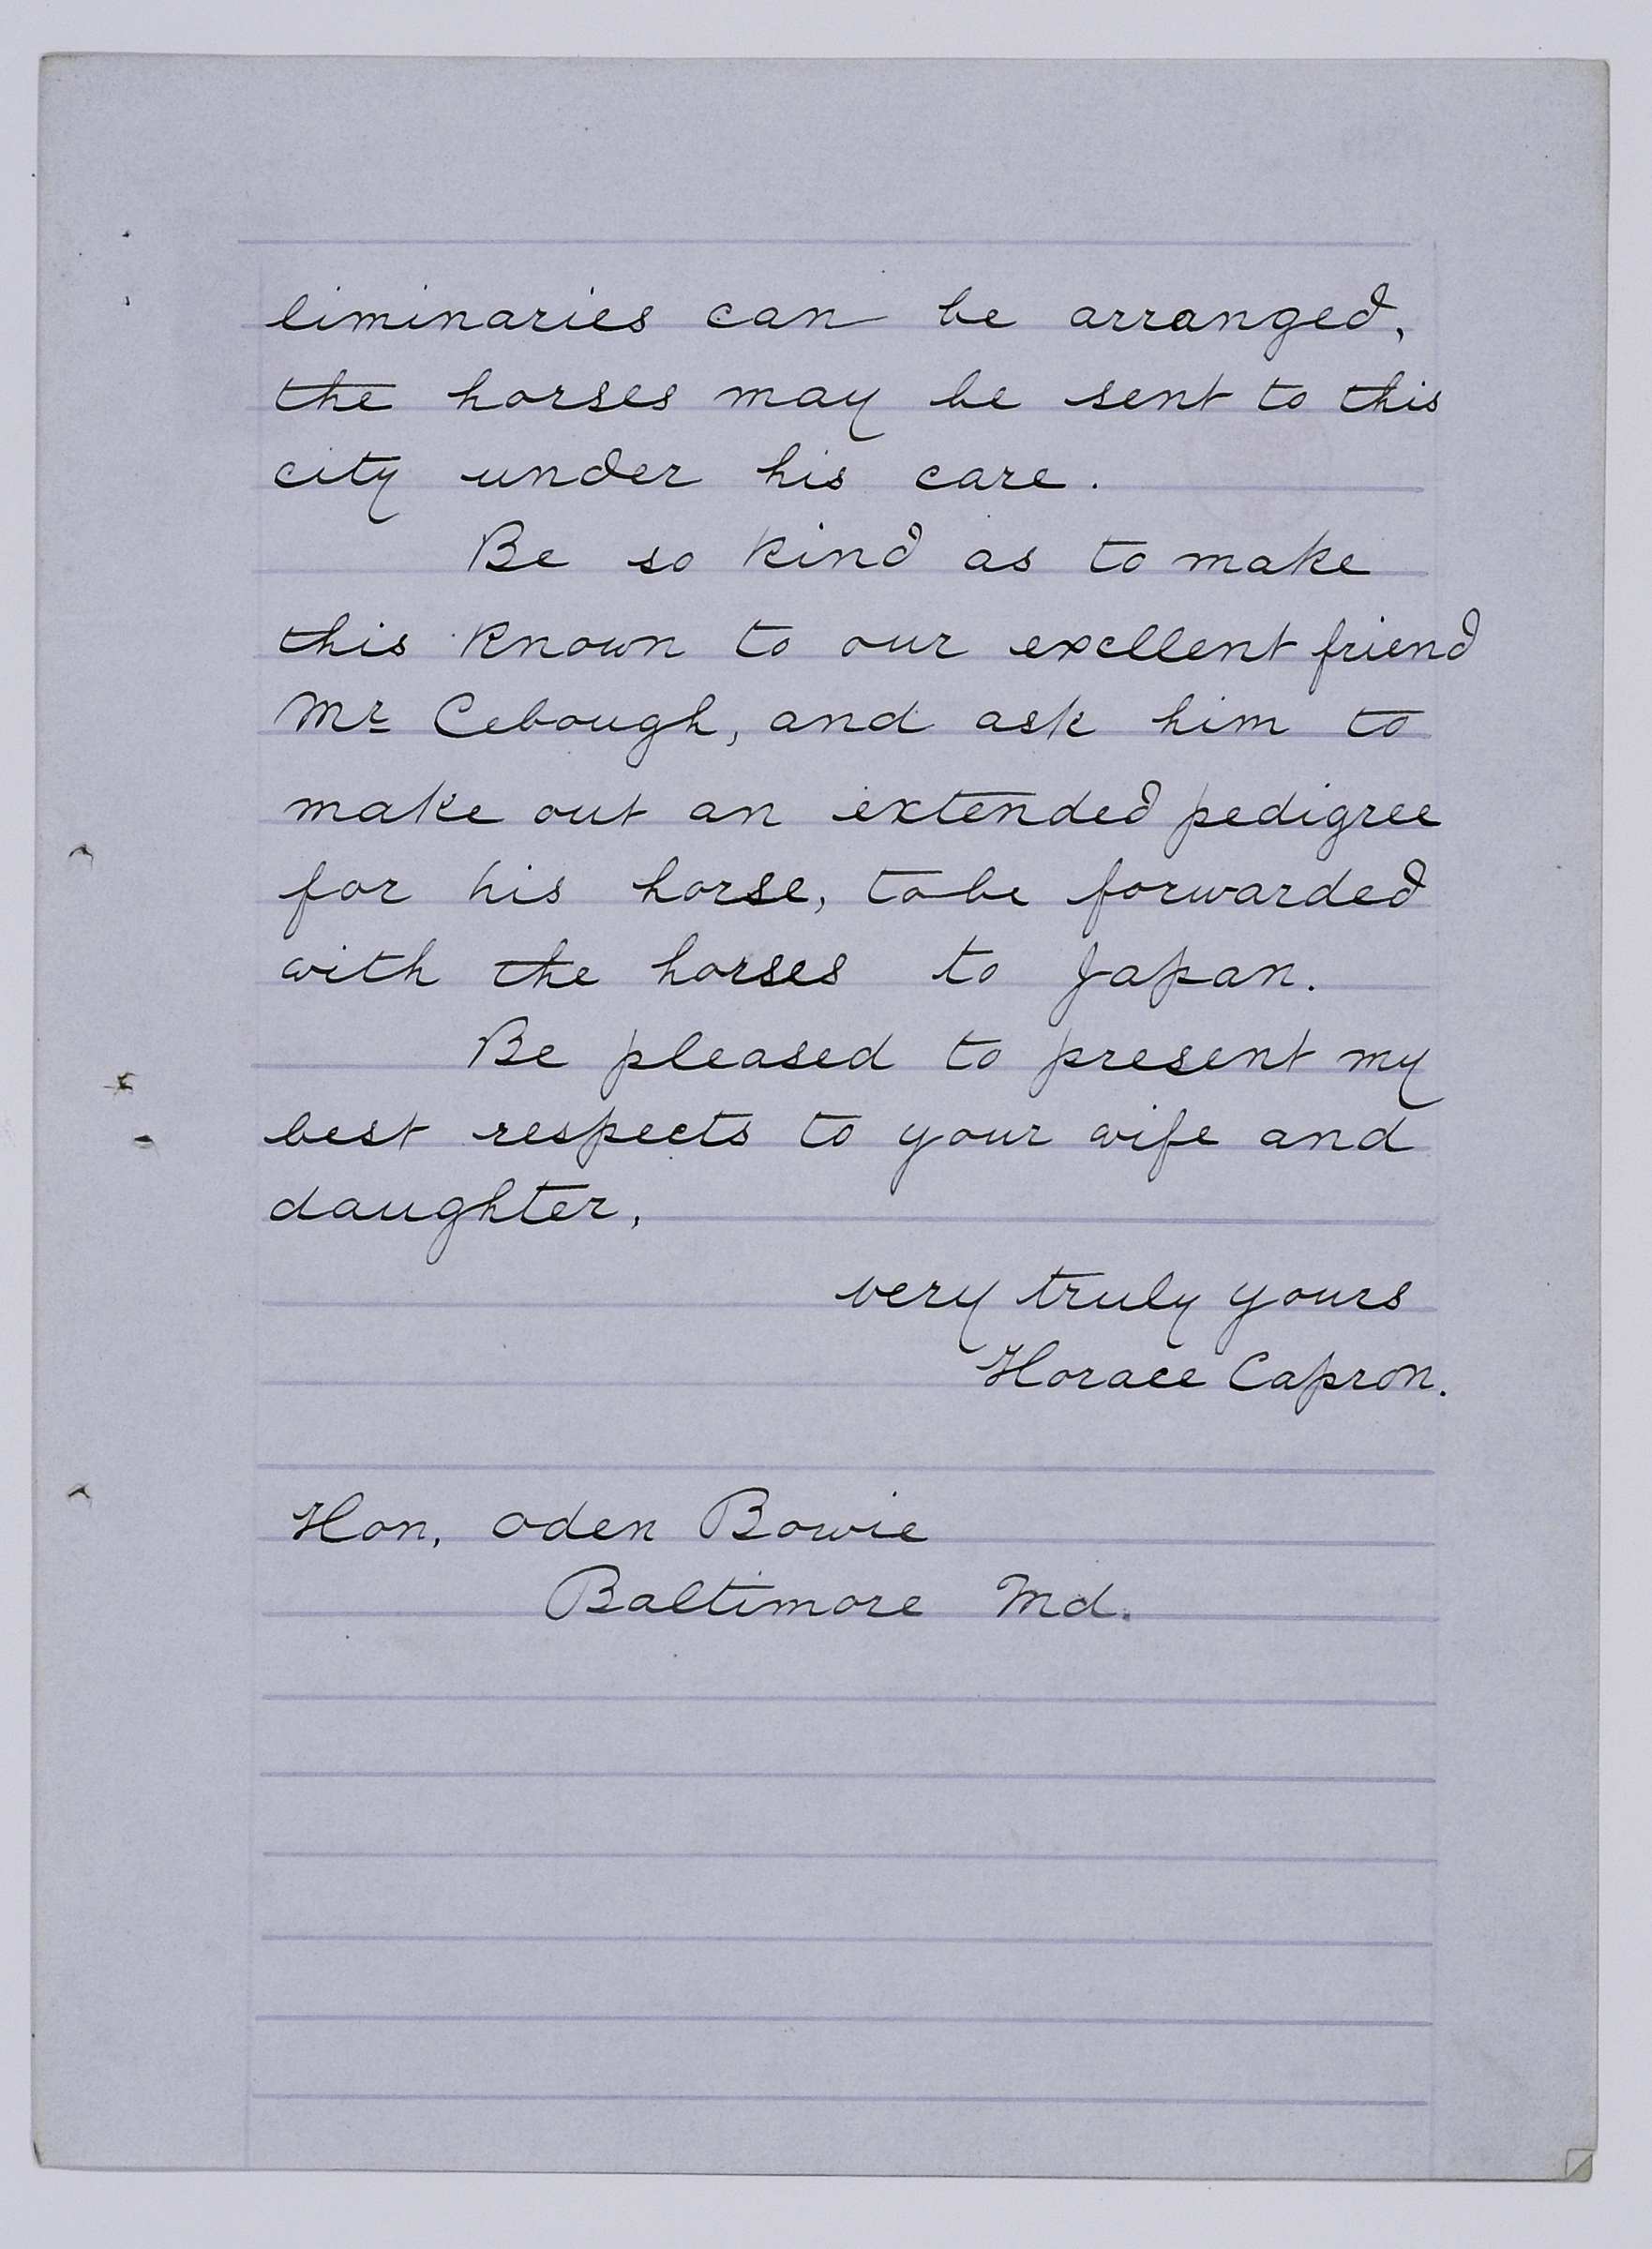 liminaries can be arranged,
the horses may be sent to this
city under his care.
Be so kind as to make
this known to our excellent friend
Mr Cebough, and ask him to
make out an extended pedigree
for his horse, to be forwarded
with the horses to Japan.
Be pleased to present my
best respects to your wife and
daughter,
very truly yours
Horace Capron.
Hon, Oden Bowie
Baltimore Md.